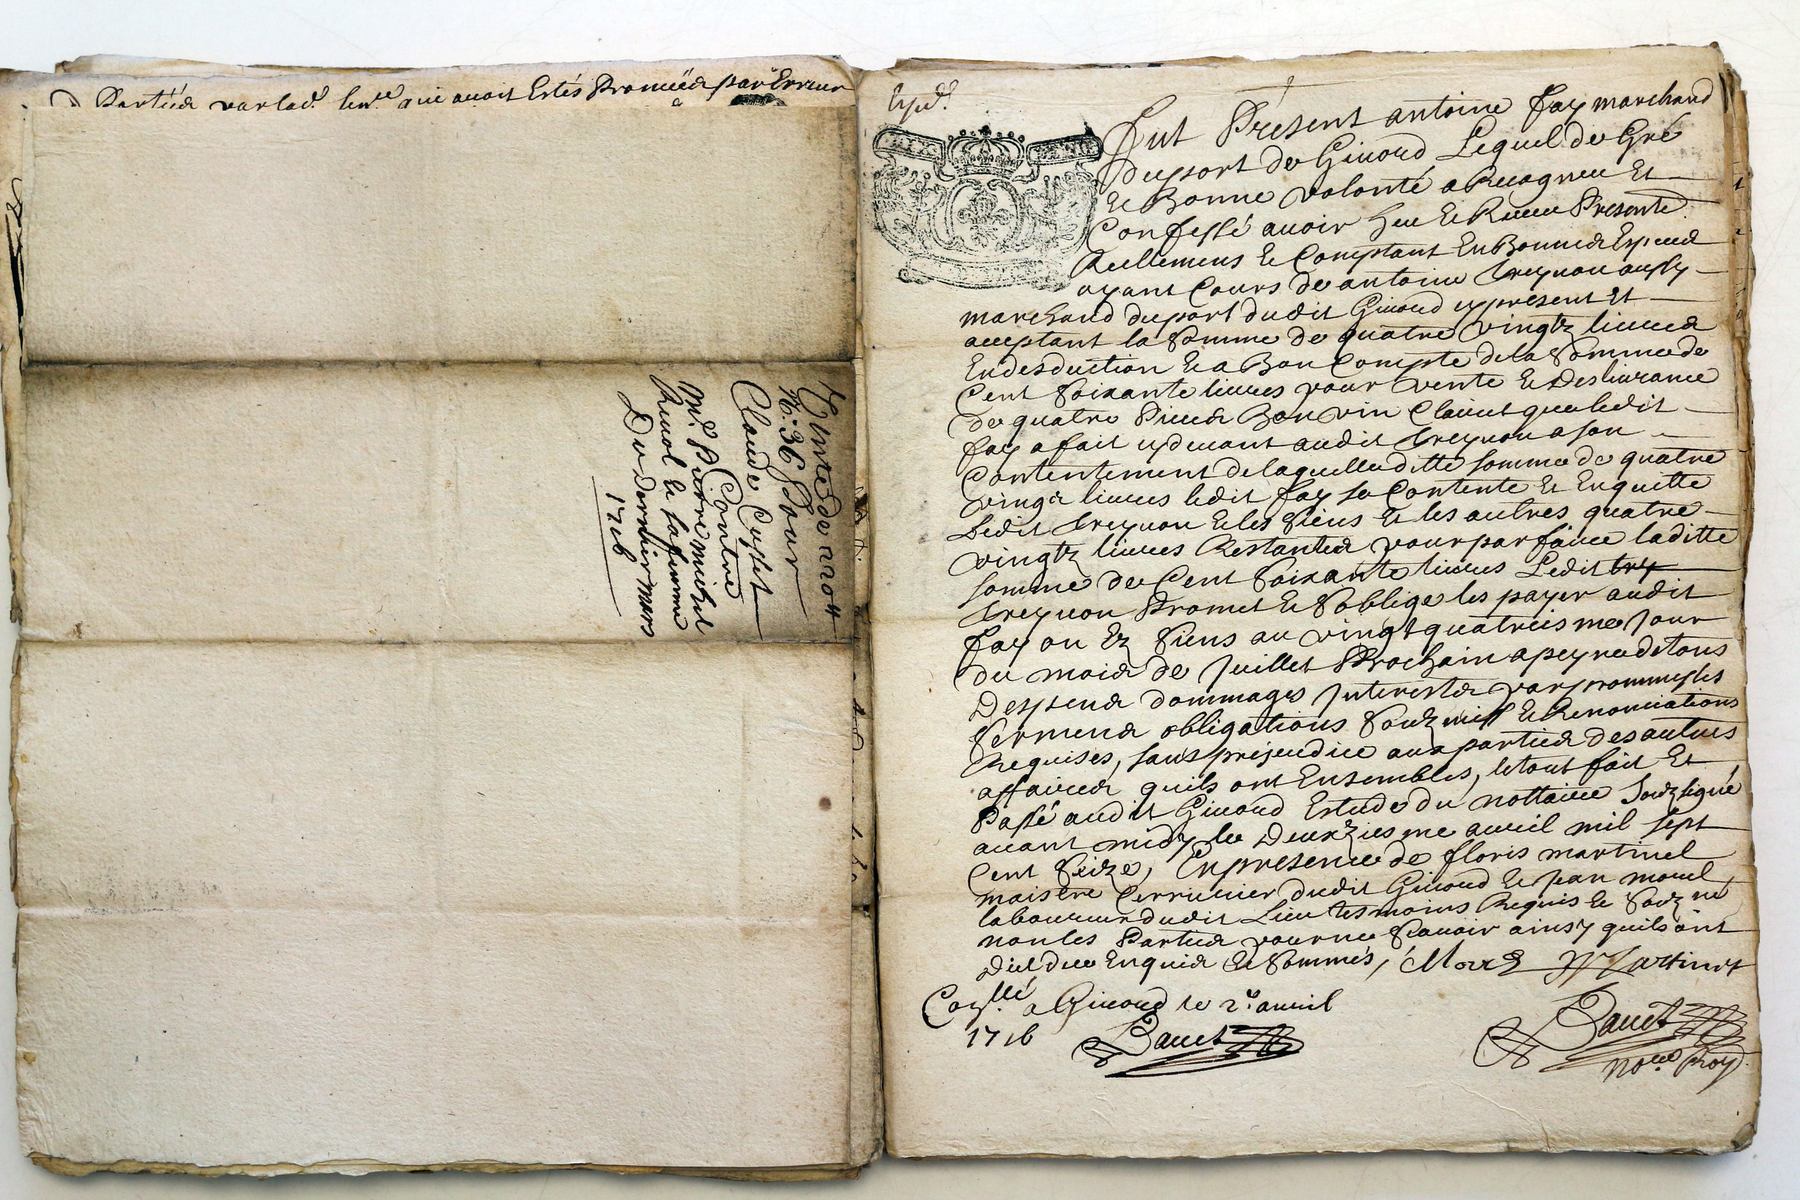 Parties par lad. sen.ce qui avoit Estés Promiēs par Erreur
Vente de
N: 36 pour
Claude
Contre
M.e Pierre michel
et sa femme
Du dernier mars
1716
Exped.
Fut Présent antoine Fay marchand
du port de Givord Lequel de Gré
Et Bonne volonté a Recogneu Et
Confessé avoir heu Et Receu Presente.
Reellement Et Comptant En Bonnes Especes
ayant Cours de antoine aussy
marchand du port dudit Givord cy present Et
acceptant la Somme de quatre vingtz livres
En desduction Et a Bon Compte de la Somme de
Cent Soixante livres pour vente Et Deslivrance
de quatre Pieces Bon vin Clairet que ledit
Fay a fait cy devant audit a son
Contentement de laquelle ditte somme de quatre
vingt livres ledit Fay se Contente Et Enquitte
Ledit Et les Siens Et les autres quatre
vingtz livres Restantes pour parfaire laditte
somme de Cent Soixante livres Ledit
Promet Et Soblige les payer audit
Fay ou Ez Siens au vingt quatriesme jour
du mois de juillet Prochain a peyne de tous
Despens dommages Interests par prommesses
Sermens obligations Soubzmiss Et Renonciations
Requises, sans prejeudice aux parties des autres
affaires quils ont Ensembles, le tout fait Et
Passé audit Givord Estude du nottaire Soubzsigné
avant midy le Deuxziesme avril mil sept
Cent Seize, En presence de floris martinel
maistre Cerrurier dudit Givord Et jean morel
laboureur dudit Lieu tesmoins Requis Et Soubz né
non les Parties pour ne Scavoir ainsy quils ont
Dit de ce Enquis Et Sommés,
Con.llé a Givord le 2.e avril
1716
No.re Roy.